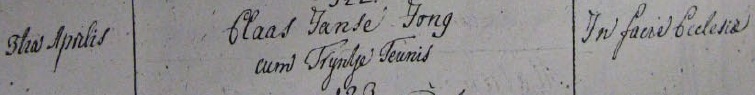 3tia Aprilis
Claas Janse Jong
cum Tryntje Teunis
In facie Ecclesiæ